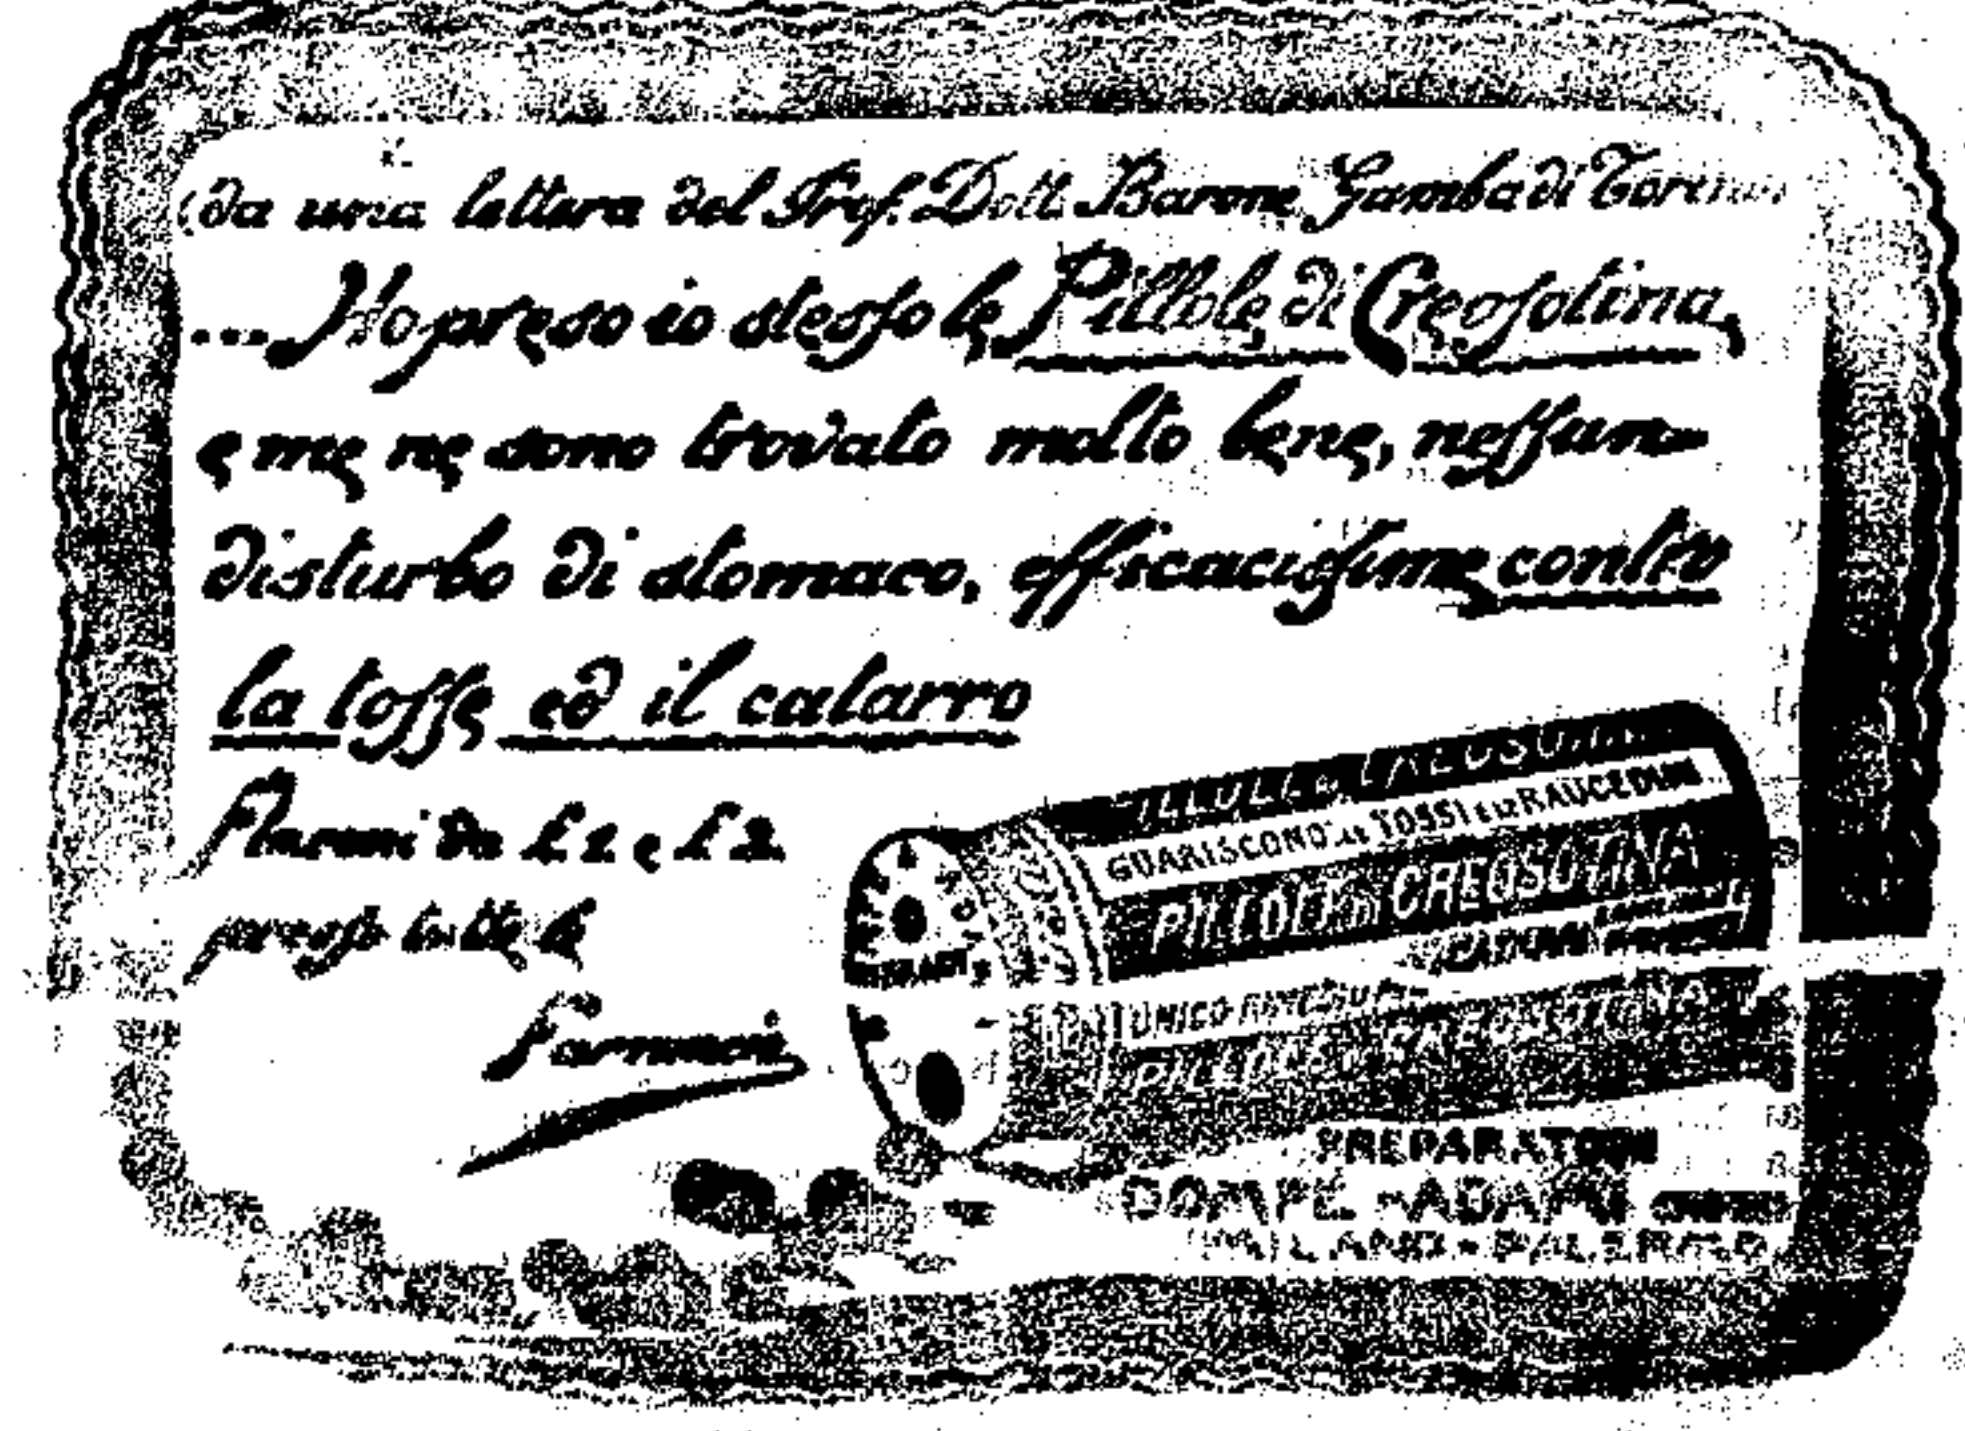 (da una lettera del Prof. Dott. Barone Gamba di Torino
... Ho preso io stesso le Pillole di Creosotina,
e me ne sono trovato molto bene, nessun
disturbo di stomaco, efficacissime contro
la tosse ed il catarro
Flaconi da L 1 e L 2
presso tutte le
Farmacie
PILLOLE DI CREOSOTINA
GUARISCONO LE TOSSI E LE RAUCEDINI
PILLOLE DI CREOSOTINA
UNICO RIMEDIO
PILLOLE DI CREOSOTINA
PREPARATORI
DOMPÉ - ADAMI
MILANO - PALERMO